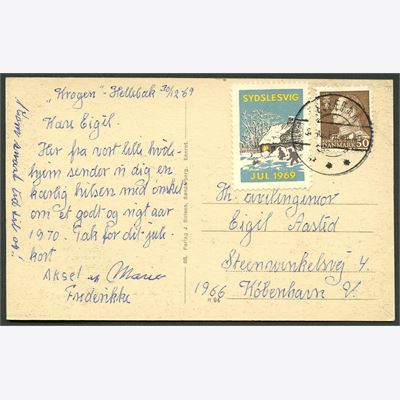 "Krogen" - Hellebæk 30/12 69
Kære Eigil.
Her fra vort lille hvide
hjem sender vi dig en
kærlig hilsen med ønsket
om et godt og rigt aar
1970. Tak for dit jule-
kort
Aksel og Marie
Frederikke
Kom snart ud til os!
SYDSLESVIG
JUL 1969
DANMARK
50
Hr. civilingeniør
Eigil Aastid
Steenwinkelsvej 4.
1966 København V.
Verlag J.